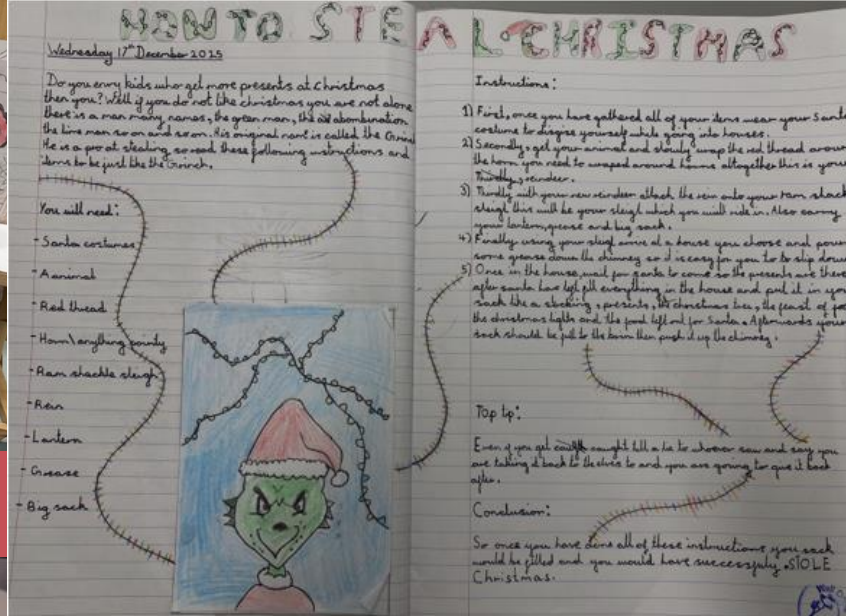 HOW TO STEAL CHRISTMAS
Wednesday 17th December 2025
Do you envy kids who get more presents at Christmas
then you? Well if you do not like christmas you are not alone
there is a man many names, the green man, the abombination
the lime man so on and so on. His original name is called the Grinch
He is a pro at stealing, so read these following instructions and
items to be just like the Grinch.
You will need:
- Santa costumes
- A animal
- Red thread
- Horn\anything pointy
- Ram shackle sleigh
- Rein
- Lantern
- Grease
- Big sack
Instructions:
1) First, once you have gathered all of your items wear your Santa
costume to disgise yourself while going into houses.
2) Secondly, get your animal and slowly wrap the red thread around
the horn you need to wraped around horns altogether this is your
Thirdly, reindeer.
3) Thirdly with your new reindeer attach the rein onto your ram shack
sleigh this will be your sleigh which you will ride in. Also carry
your lantern, grease and big sack.
4) Finally using your sleigh arrive at a house you choose and pour
some grease down the chimney so it is easy for you to to slip down
5) Once in the house, wait for santa to come so the presents are there
after santa have left fill everything in the house and put it in your
sack like a stocking, presents, christmas tree, the feast of
the christmas lights and the food left out for Santa. Afterwards your
sack should be full to the brim then push it up the chimney.
Top tip:
Even if you get caught tell a lie to whoever saw and say you
are taking it back to the elves to and you are going to give it back
after.
Conclusion:
So once you have done all of these instructions you sack
would be filled and you would have successfuly STOLE
Christmas.